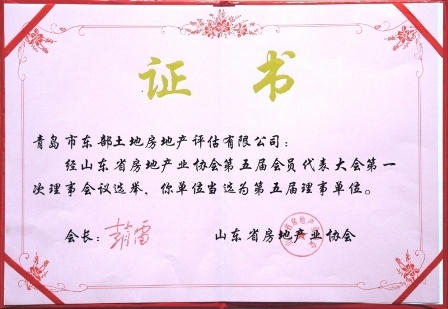 证书
青岛市东部土地房地产评估有限公司：
经山东省房地产业协会第五届会员代表大会第一
次理事会议选举、你单位当选为第五届理事单位。
会长：
山东省房地产业协会